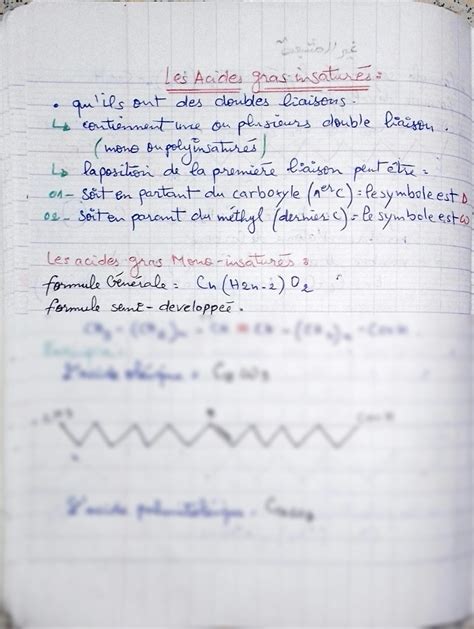 غير المشبعة
Les Acides gras insaturés :
• qu'ils ont des doubles liaisons.
↳ contiennent une ou plusieurs double liaison.
(mono ou polyinsaturés)
↳ la position de la première liaison peut être :
01- Soit en partant du carboxyle (1er C) = le symbole est Δ
02- Soit en parant du méthyl (dernier C) = le symbole est ω
Les acides gras Mono-insaturés :
formule Générale : Cn (H2n-2) O2
formule semi-developpée :
CH3 - (CH2)n - CH = CH - (CH2)n - COOH
L'acide oléique =
CH3
COOH
L'acide palmitoléique =